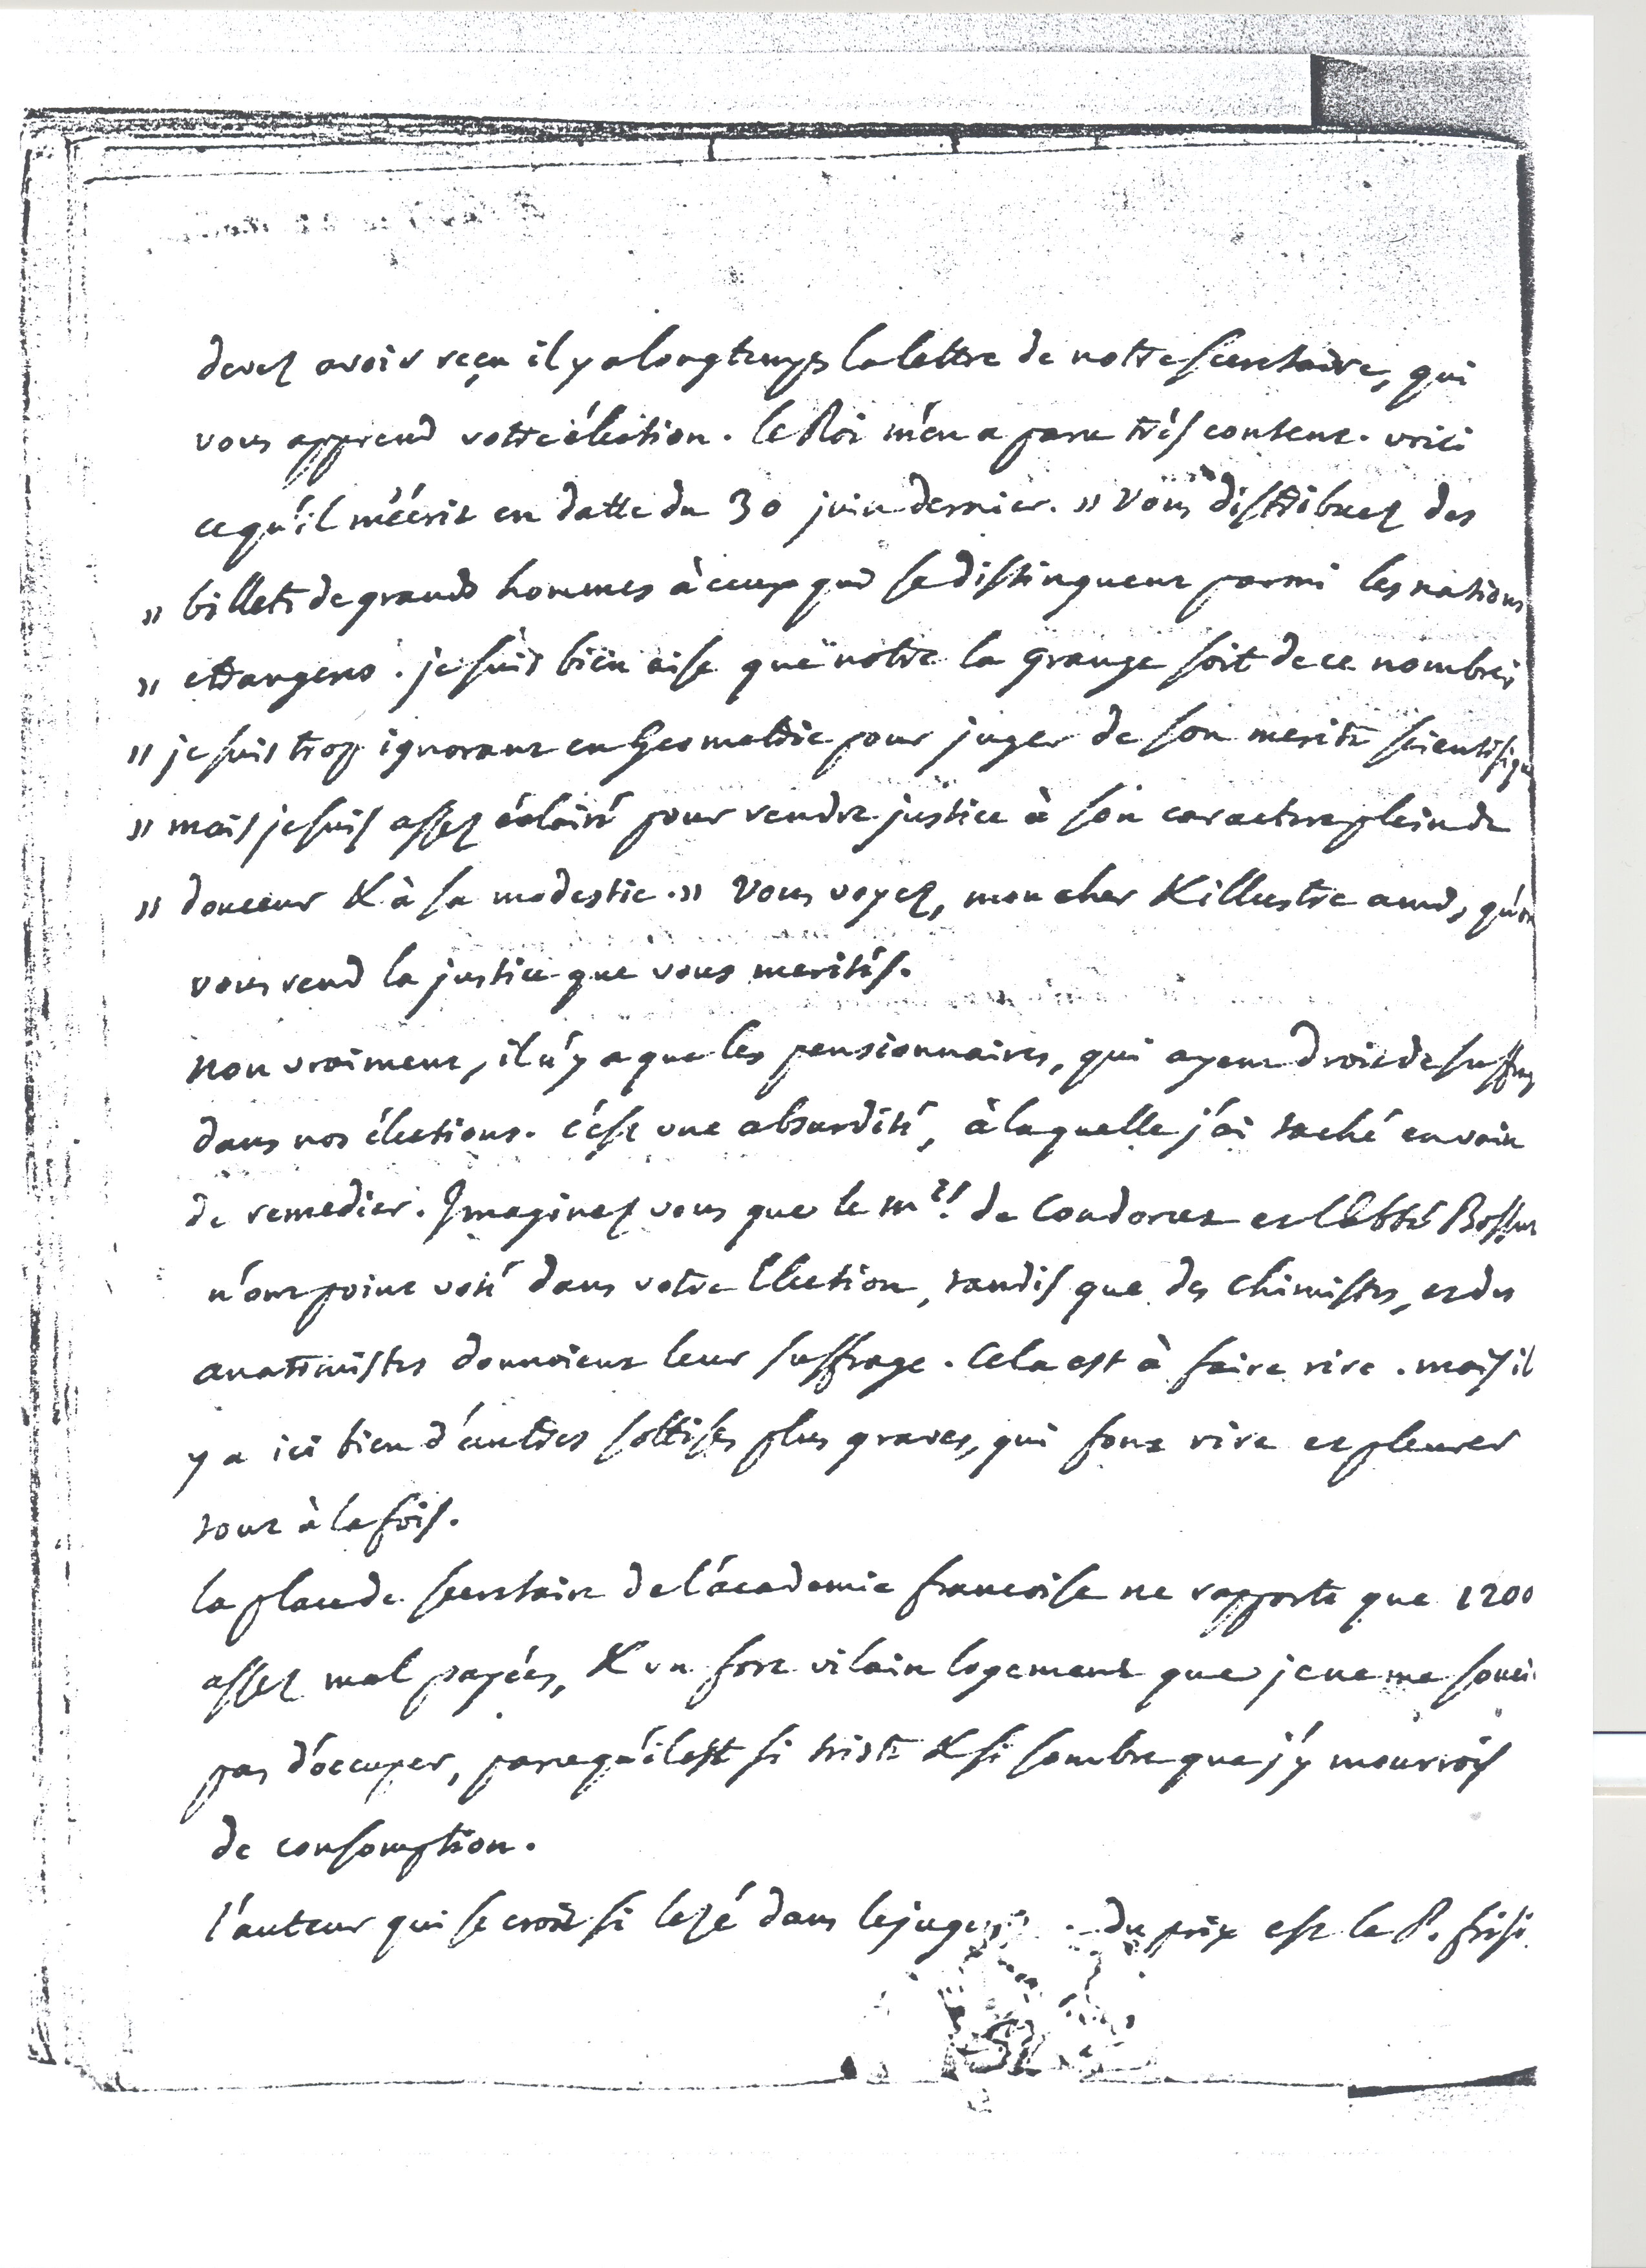 devez avoir reçu il y a longtemps la lettre de notre secretaire, qui
vous apprend votre élection. le Roi m'en a paru très content. voici
ce qu'il m'écrit en datte du 30 juin dernier. » Vous distribuez des
» billets de grands hommes à ceux qui se distinguent parmi les nations
» etrangeres. je suis bien aise que notre la grange soit de ce nombre;
» je suis trop ignorant en Geometrie pour juger de son merite scientifique
» mais je suis assez éclairé pour rendre justice à son caractere plein de
» douceur & à sa modestie. » Vous voyez, mon cher & illustre ami, qu'on
vous rend la justice que vous merités.
Non vraiment, il n'y a que les pensionnaires, qui ayent droit de suffrag
dans nos élections. c'est une absurdité, à laquelle j'ai taché en vain
de remedier. Imaginez vous que le m.is de Condorcet et l'abbé Bossut
n'ont point voté dans votre Election, tandis que des chimistes, et des
anatomistes donnoient leur suffrage. Cela est à faire rire. mais il
y a ici bien d'autres sottises plus graves, qui font rire et pleurer
tout à la fois.
la place de secretaire de l'académie francoise ne rapporte que 1200
assez mal payées, & un fort vilain logement que je ne me souci
pas d'occuper, parcequ'il est si triste & si sombre que j'y mourrois
de consomption.
l'auteur qui se croit si lezé dans le juge du prix est le P. frisi